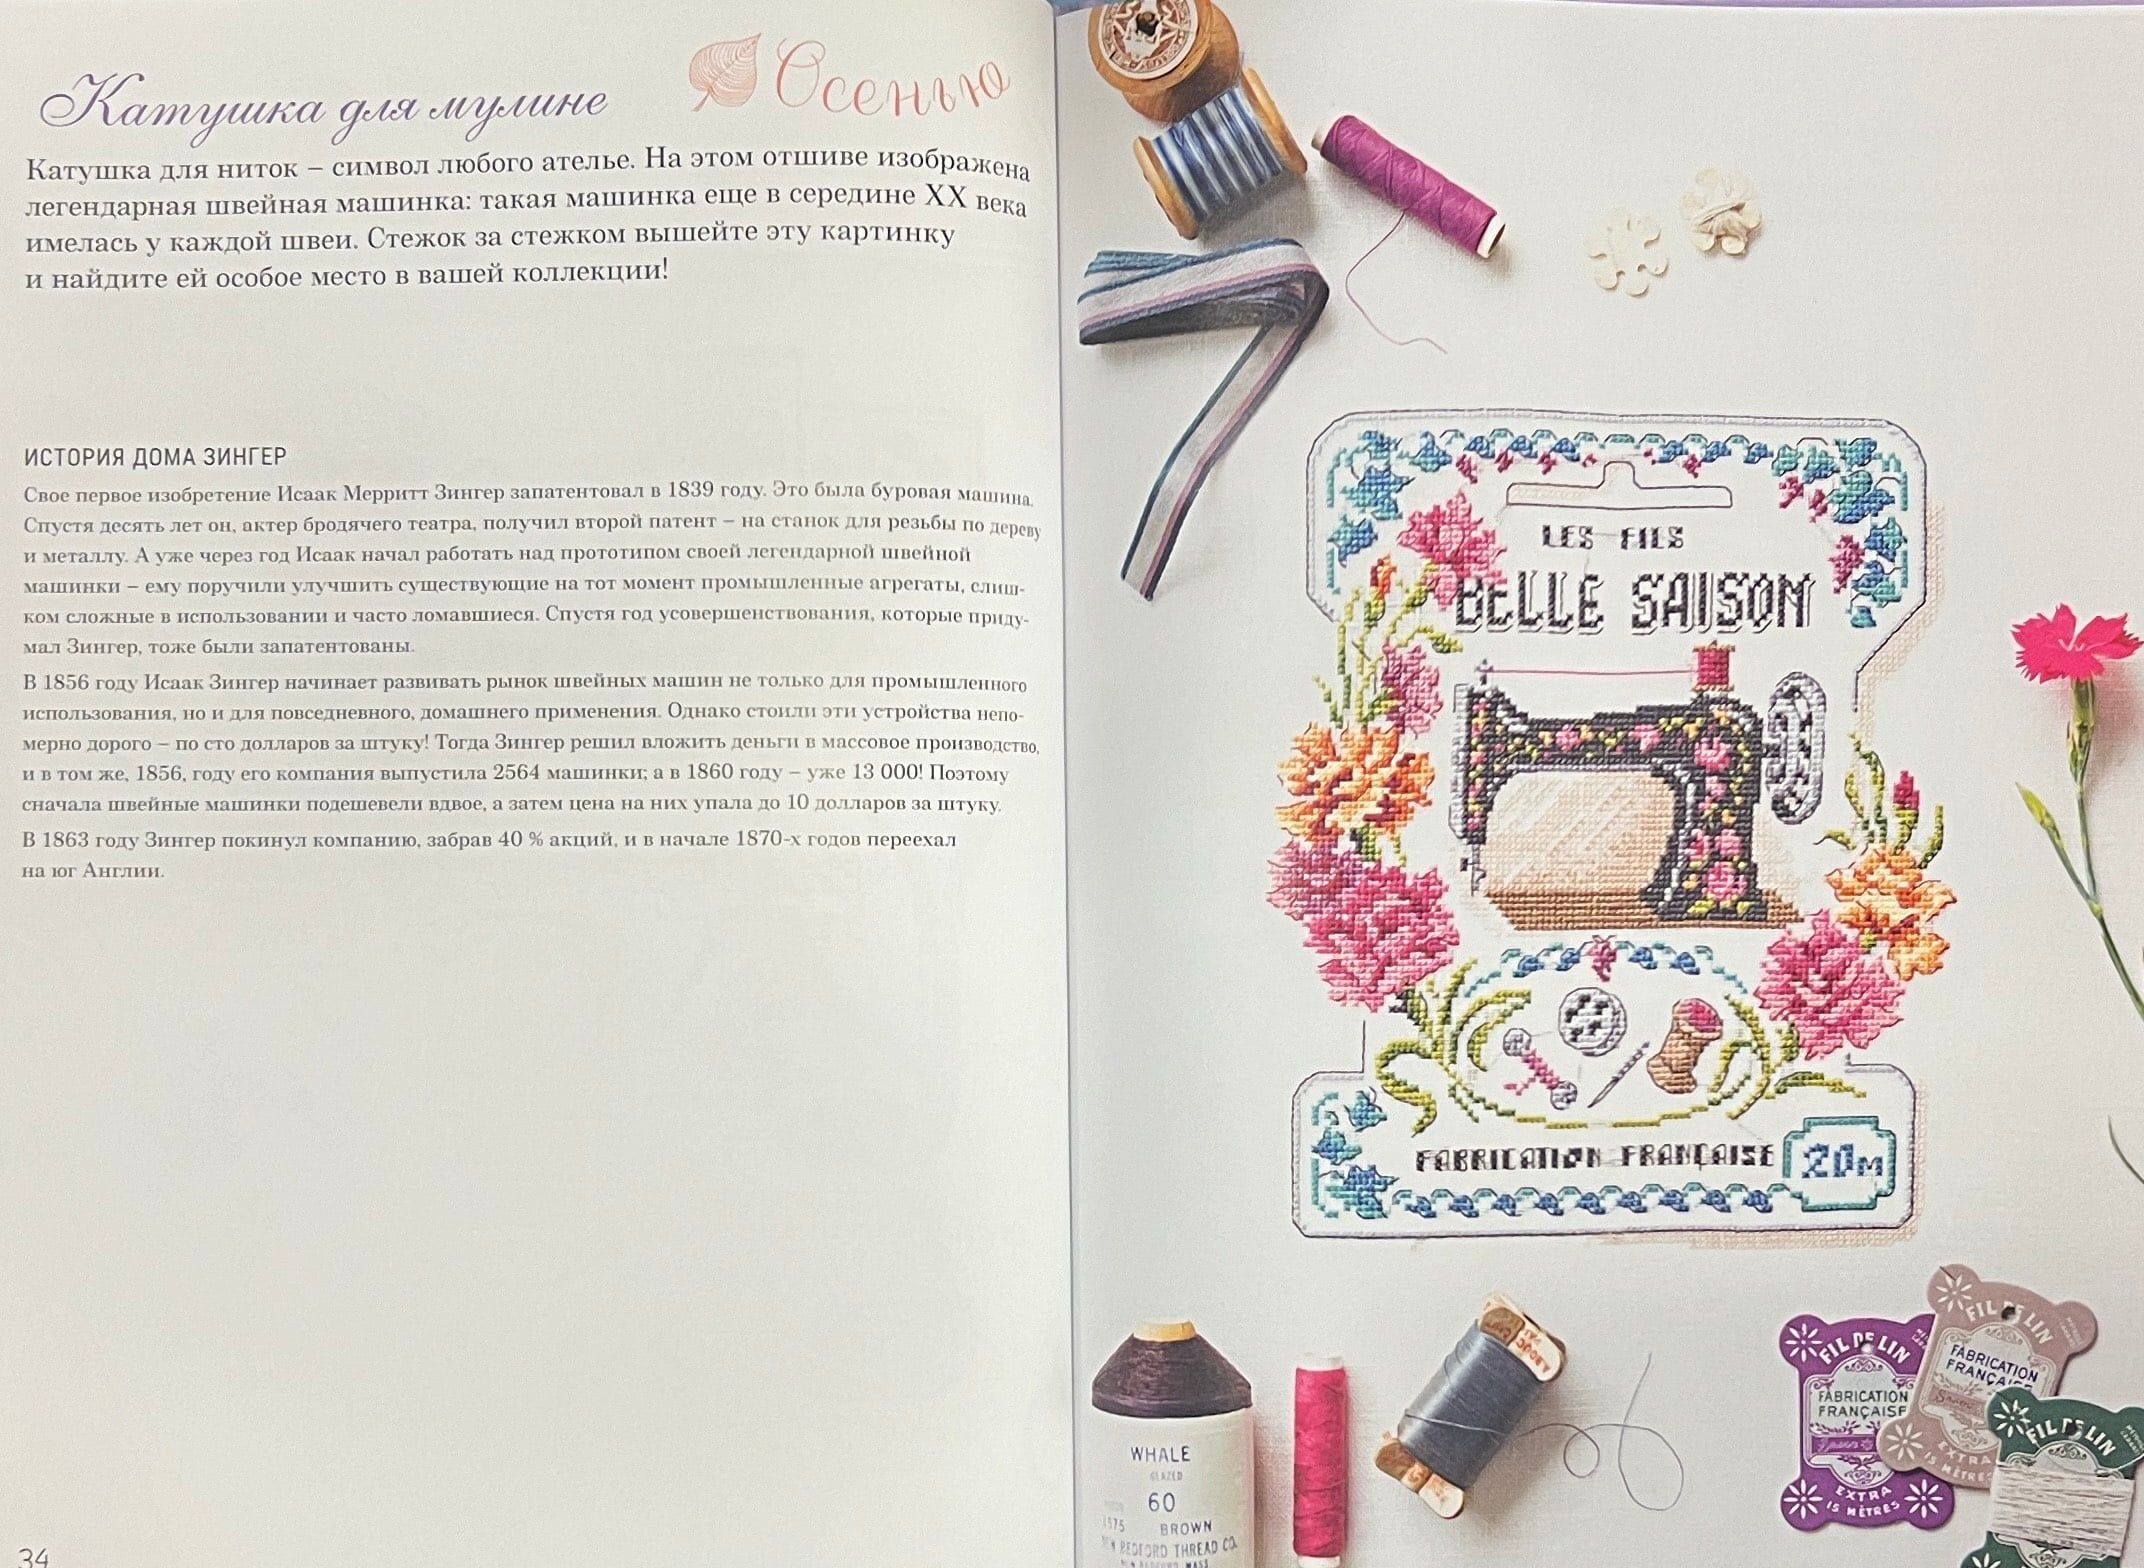 Катушка для мулине
Осенью
Катушка для ниток – символ любого ателье. На этом отшиве изображена
легендарная швейная машинка: такая машинка еще в середине XX века
имелась у каждой швеи. Стежок за стежком вышейте эту картинку
и найдите ей особое место в вашей коллекции!
ИСТОРИЯ ДОМА ЗИНГЕР
Свое первое изобретение Исаак Мерритт Зингер запатентовал в 1839 году. Это была буровая машина.
Спустя десять лет он, актер бродячего театра, получил второй патент – на станок для резьбы по дереву
и металлу. А уже через год Исаак начал работать над прототипом своей легендарной швейной
машинки – ему поручили улучшить существующие на тот момент промышленные агрегаты, слиш-
ком сложные в использовании и часто ломавшиеся. Спустя год усовершенствования, которые приду-
мал Зингер, тоже были запатентованы.
В 1856 году Исаак Зингер начинает развивать рынок швейных машин не только для промышленного
использования, но и для повседневного, домашнего применения. Однако стоили эти устройства непо-
мерно дорого – по сто долларов за штуку! Тогда Зингер решил вложить деньги в массовое производство,
и в том же, 1856, году его компания выпустила 2564 машинки; а в 1860 году – уже 13 000! Поэтому
сначала швейные машинки подешевели вдвое, а затем цена на них упала до 10 долларов за штуку.
В 1863 году Зингер покинул компанию, забрав 40 % акций, и в начале 1870-х годов переехал
на юг Англии.
34
LES FILS
BELLE SAISON
FABRICATION FRANÇAISE
20M
WHALE
GLAZED
60
BROWN
BEDFORD THREAD CO.
MASS
FIL DE LIN
FABRICATION
FRANÇAISE
EXTRA
15 MÈTRES
FIL DE LIN
FABRICATION
EXTRA
15 MÈTRES
FIL DE LIN